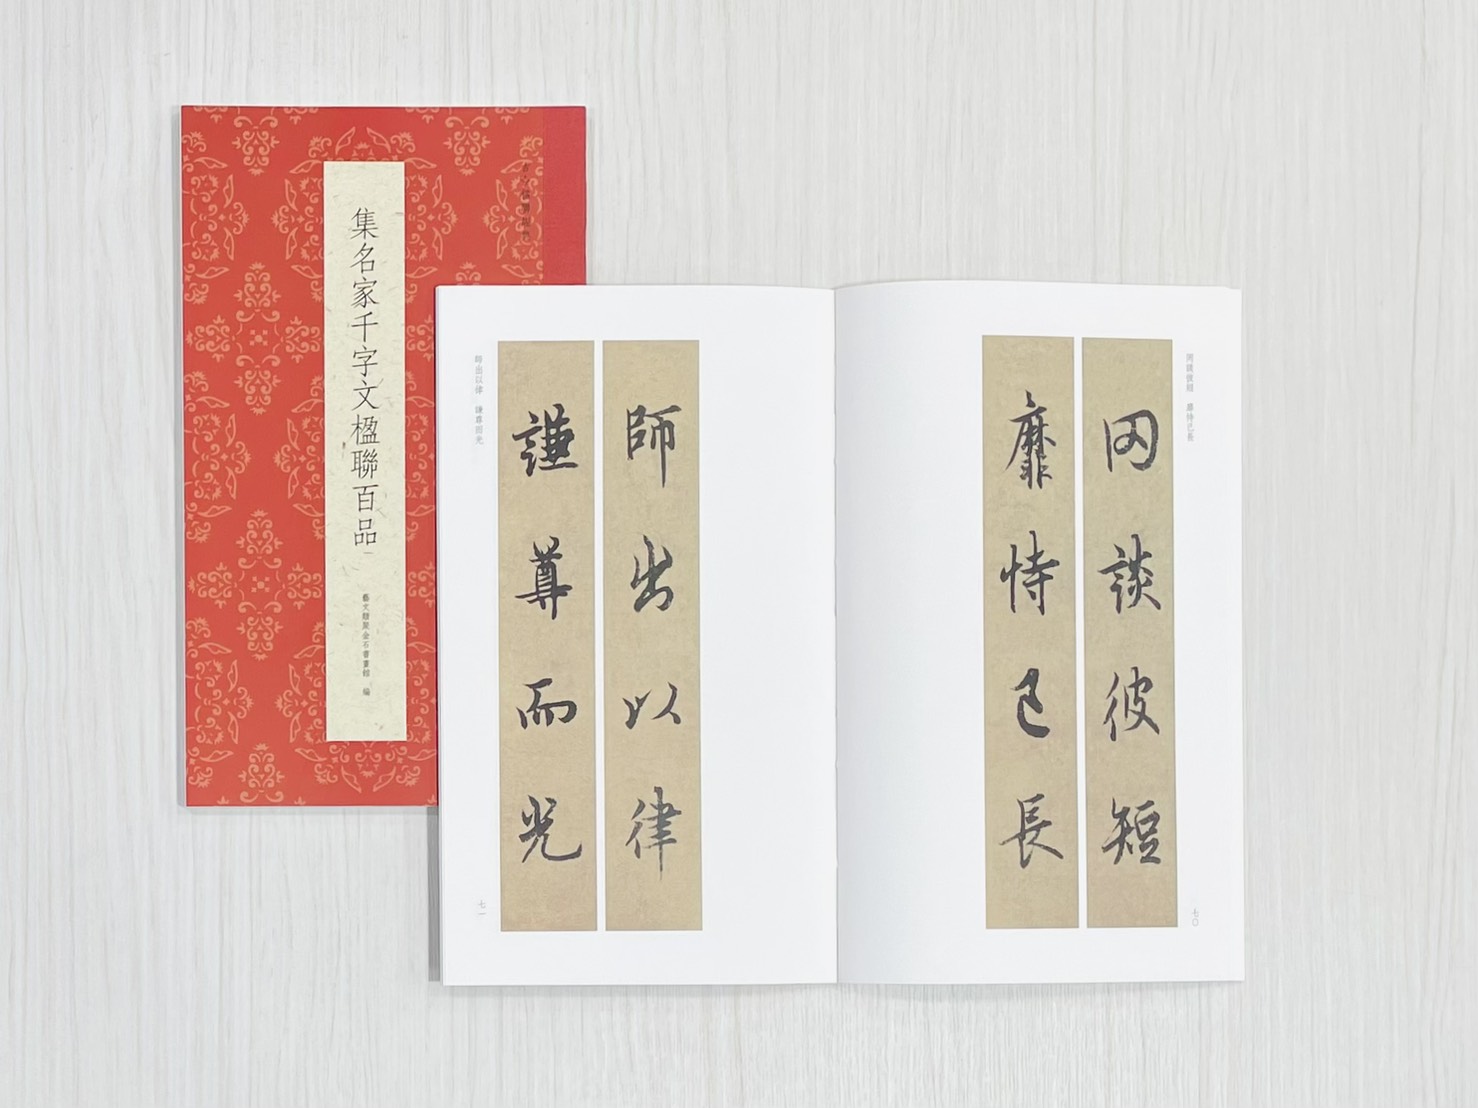 集名家千字文楹聯百品
藝文類聚金石書畫館 編
罔談彼短 靡恃己長
罔談彼短
靡恃己長
七〇
師出以律
謙尊而光
師出以律 謙尊而光
七一